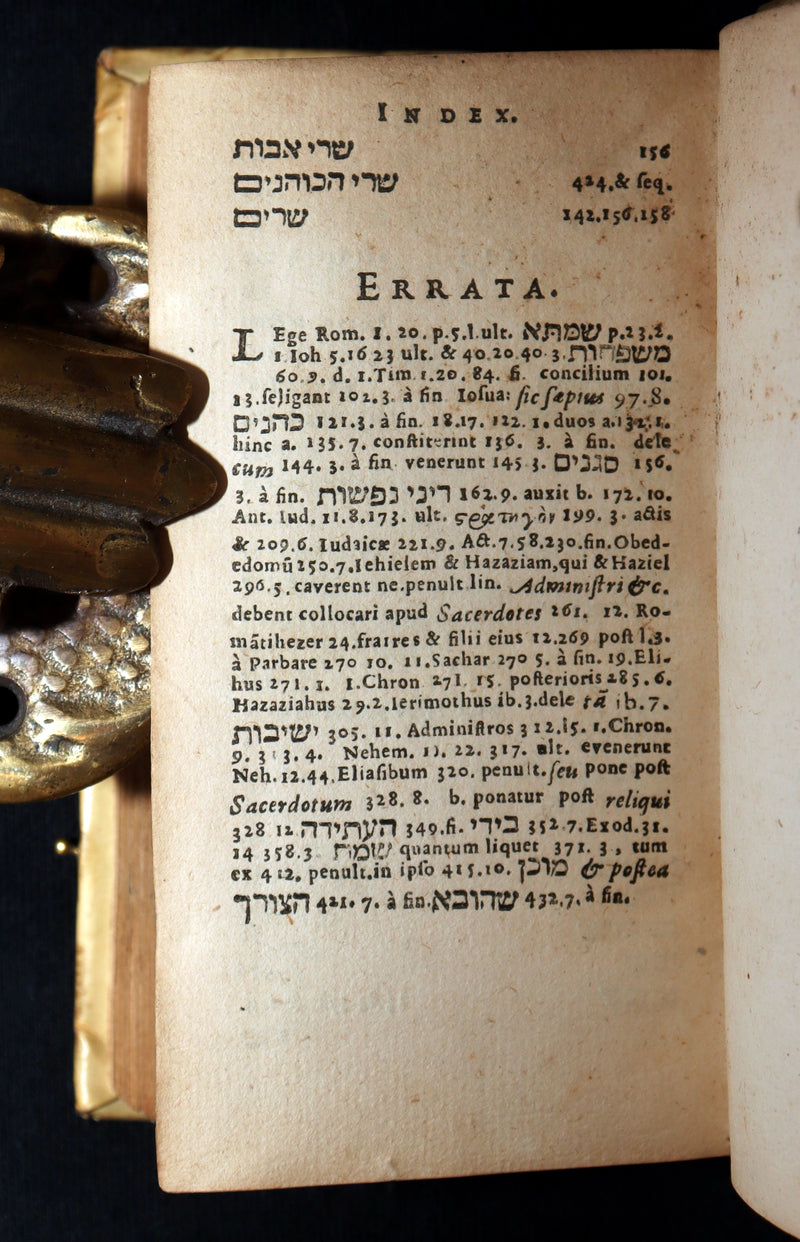 INDEX.
שרי אבות 156
שרי הכוהנים 424.& ſeq.
שרים 142.156.158
ERRATA.
LEge Rom. 1. 20. p.5.l.ult. שמתא p.23.1.
1 Ioh 5.16 23 ult. & 40.20.40.3.משפחות
60.9. d. 1.Tim.1.20. 84. fi. concilium 101.
13.ſeligant 102.3. à fin Ioſua: ſic ſæpius 97.8.
כהנים 121.3. à fin. 18.17. 122. 1. duos a.
hinc a. 135.7. conſtiterint 136. 3. à fin. dele
cum 144. 3. à fin. venerunt 145 3. סגנים 156.
3. à fin. דיני נפשות 162.9. auxit b. 172.10.
Ant. Iud. 11.8.173. ult. ςρατηγὸν 199. 3. actis
& 209.6. Iudaicæ 221.9. Act.7.58.230.fin.Obed-
edomũ 250.7.Iehielem & Hazaziam,qui & Haziel
296.5.caverent ne.penult lin. Adminiſtri &c.
debent collocari apud Sacerdotes 261. 12. Ro-
mãtihezer 24.fratres & filii eius 12.269 poſt l.3.
à Parbare 270 10. 11.Sachar 270 5. à fin. 19.Eli-
hus 271.1. 1.Chron 271. 15. poſterioris 285.6.
Hazaziahus 29.2.Ierimothus ib.3.dele tã ib.7.
ישיבות 305. 11. Adminiſtros 312.15. 1.Chron.
9. 3 3. 4. Nehem. 11. 22. 317. ult. evenerunt
Neh.12.44.Eliaſibum 320. penult.ſeu pone poſt
Sacerdotum 328. 8. b. ponatur poſt reliqui
328 12 העתידה 349.fi. בידי 352.7.Exod.31.
14 358.3 שמות quantum liquet 371. 3, tum
ex 412. penult.in ipſo 415.10. מוכן & poſtea
הצורך 421. 7. à fin.שהובא 432.7.à fin.